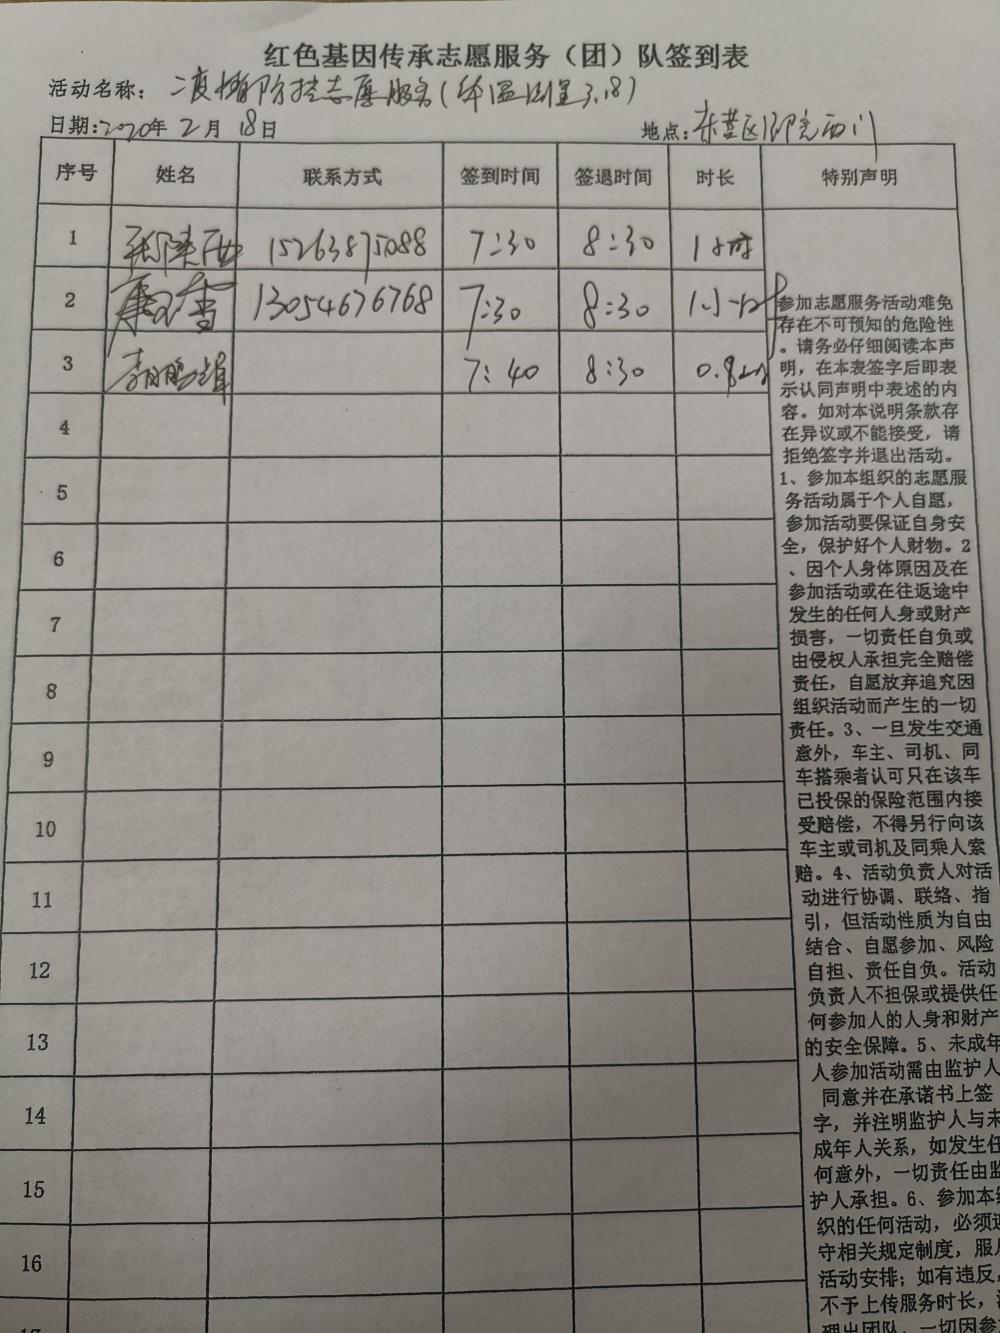 红色基因传承志愿服务（团）队签到表
活动名称：疫情防控志愿服务(体温测量3.18)
日期:2020年2月18日 地点:东营区西门
序号 姓名 联系方式 签到时间 签退时间 时长 特别声明
1 张陕西 15263875088 7:30 8:30 1小时
2 13054676768 7:30 8:30
3 7:40 8:30
4
5
6
7
8
9
10
11
12
13
14
15
16
17
参加志愿服务活动难免
存在不可预知的危险性
。请务必仔细阅读本声
明，在本表签字后即表
示认同声明中表述的内
容。如对本说明条款存
在异议或不能接受，请
拒绝签字并退出活动。
1、参加本组织的志愿服
务活动属于个人自愿，
参加活动要保证自身安
全，保护好个人财物。2
、因个人身体原因及在
参加活动或在往返途中
发生的任何人身或财产
损害，一切责任自负或
由侵权人承担完全赔偿
责任，自愿放弃追究因
组织活动而产生的一切
责任。3、一旦发生交通
意外，车主、司机、同
车搭乘者认可只在该车
已投保的保险范围内接
受赔偿，不得另行向该
车主或司机及同乘人索
赔。4、活动负责人对活
动进行协调、联络、指
引，但活动性质为自由
结合、自愿参加、风险
自担、责任自负。活动
负责人不担保或提供任
何参加人的人身和财产
的安全保障。5、未成年
人参加活动需由监护人
同意并在承诺书上签
字，并注明监护人与未
成年人关系，如发生任
何意外，一切责任由监
护人承担。6、参加本组
织的任何活动，必须遵
守相关规定制度，服从
活动安排；如有违反，
不予上传服务时长，
理出团队，一切因参